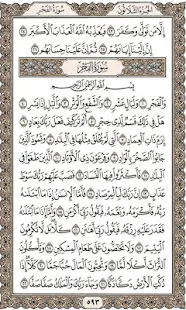 الجزء الثلاثون سورة الفجر
إِلَّا مَن تَوَلَّىٰ وَكَفَرَ ٢٣ فَيُعَذِّبُهُ ٱللَّهُ ٱلْعَذَابَ ٱلْأَكْبَرَ ٢٤
إِنَّ إِلَيْنَآ إِيَابَهُمْ ٢٥ ثُمَّ إِنَّ عَلَيْنَا حِسَابَهُم ٢٦
سُورَةُ الفَجْرِ
بِسْمِ ٱللَّهِ ٱلرَّحْمَٰنِ ٱلرَّحِيمِ
وَٱلْفَجْرِ ١ وَلَيَالٍ عَشْرٍ ٢ وَٱلشَّفْعِ وَٱلْوَتْرِ ٣ وَٱلَّيْلِ إِذَا يَسْرِ ٤
هَلْ فِى ذَٰلِكَ قَسَمٌ لِّذِى حِجْرٍ ٥ أَلَمْ تَرَ كَيْفَ فَعَلَ رَبُّكَ بِعَادٍ ٦
إِرَمَ ذَاتِ ٱلْعِمَادِ ٧ ٱلَّتِى لَمْ يُخْلَقْ مِثْلُهَا فِى ٱلْبِلَٰدِ ٨ وَثَمُودَ
ٱلَّذِينَ جَابُوا۟ ٱلصَّخْرَ بِٱلْوَادِ ٩ وَفِرْعَوْنَ ذِى ٱلْأَوْتَادِ ١٠ ٱلَّذِينَ
طَغَوْا۟ فِى ٱلْبِلَٰدِ ١١ فَأَكْثَرُوا۟ فِيهَا ٱلْفَسَادَ ١٢ فَصَبَّ عَلَيْهِمْ رَبُّكَ
سَوْطَ عَذَابٍ ١٣ إِنَّ رَبَّكَ لَبِٱلْمِرْصَادِ ١٤ فَأَمَّا ٱلْإِنسَٰنُ إِذَا مَا ٱبْتَلَىٰهُ
رَبُّهُۥ فَأَكْرَمَهُۥ وَنَعَّمَهُۥ فَيَقُولُ رَبِّىٓ أَكْرَمَنِ ١٥ وَأَمَّآ إِذَا مَا ٱبْتَلَىٰهُ
فَقَدَرَ عَلَيْهِ رِزْقَهُۥ فَيَقُولُ رَبِّىٓ أَهَٰنَنِ ١٦ كَلَّا بَل لَّا تُكْرِمُونَ
ٱلْيَتِيمَ ١٧ وَلَا تَحَٰٓضُّونَ عَلَىٰ طَعَامِ ٱلْمِسْكِينِ ١٨ وَتَأْكُلُونَ
ٱلتُّرَاثَ أَكْلًا لَّمًّا ١٩ وَتُحِبُّونَ ٱلْمَالَ حُبًّا جَمًّا ٢٠ كَلَّآ إِذَا
دُكَّتِ ٱلْأَرْضُ دَكًّا دَكًّا ٢١ وَجَآءَ رَبُّكَ وَٱلْمَلَكُ صَفًّا صَفًّا ٢٢
٥٩٣